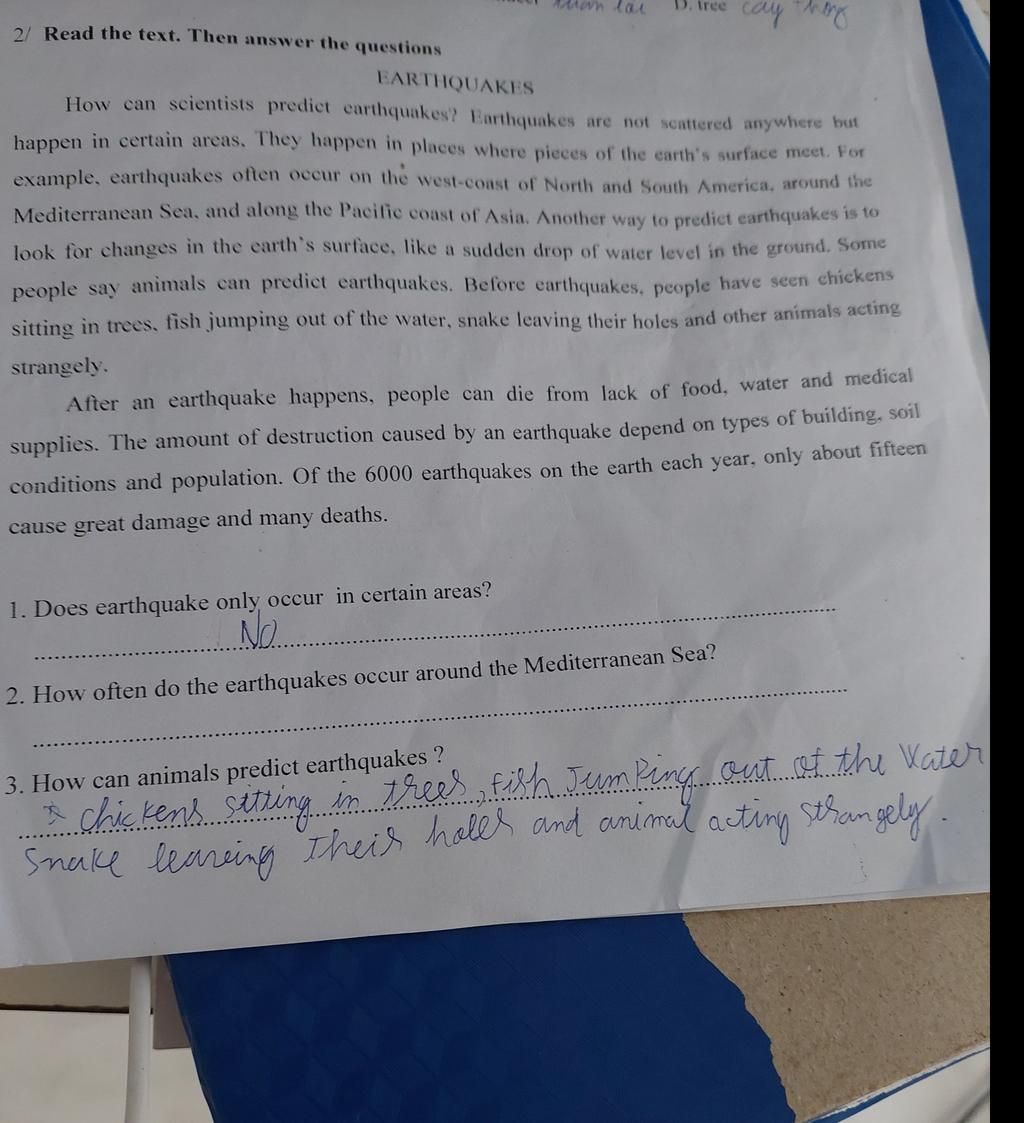 D. tree cây
2/ Read the text. Then answer the questions
EARTHQUAKES
How can scientists predict earthquakes? Earthquakes are not scattered anywhere but
happen in certain areas. They happen in places where pieces of the earth's surface meet. For
example, earthquakes often occur on the west-coast of North and South America, around the
Mediterranean Sea, and along the Pacific coast of Asia. Another way to predict earthquakes is to
look for changes in the earth's surface, like a sudden drop of water level in the ground. Some
people say animals can predict earthquakes. Before earthquakes, people have seen chickens
sitting in trees, fish jumping out of the water, snake leaving their holes and other animals acting
strangely.
After an earthquake happens, people can die from lack of food, water and medical
supplies. The amount of destruction caused by an earthquake depend on types of building, soil
conditions and population. Of the 6000 earthquakes on the earth each year, only about fifteen
cause great damage and many deaths.
1. Does earthquake only occur in certain areas?
NO
2. How often do the earthquakes occur around the Mediterranean Sea?
3. How can animals predict earthquakes ?
chickens sitting in trees, fish Jumping out of the Water
Snake leaveing Their holes and animal acting strangely.